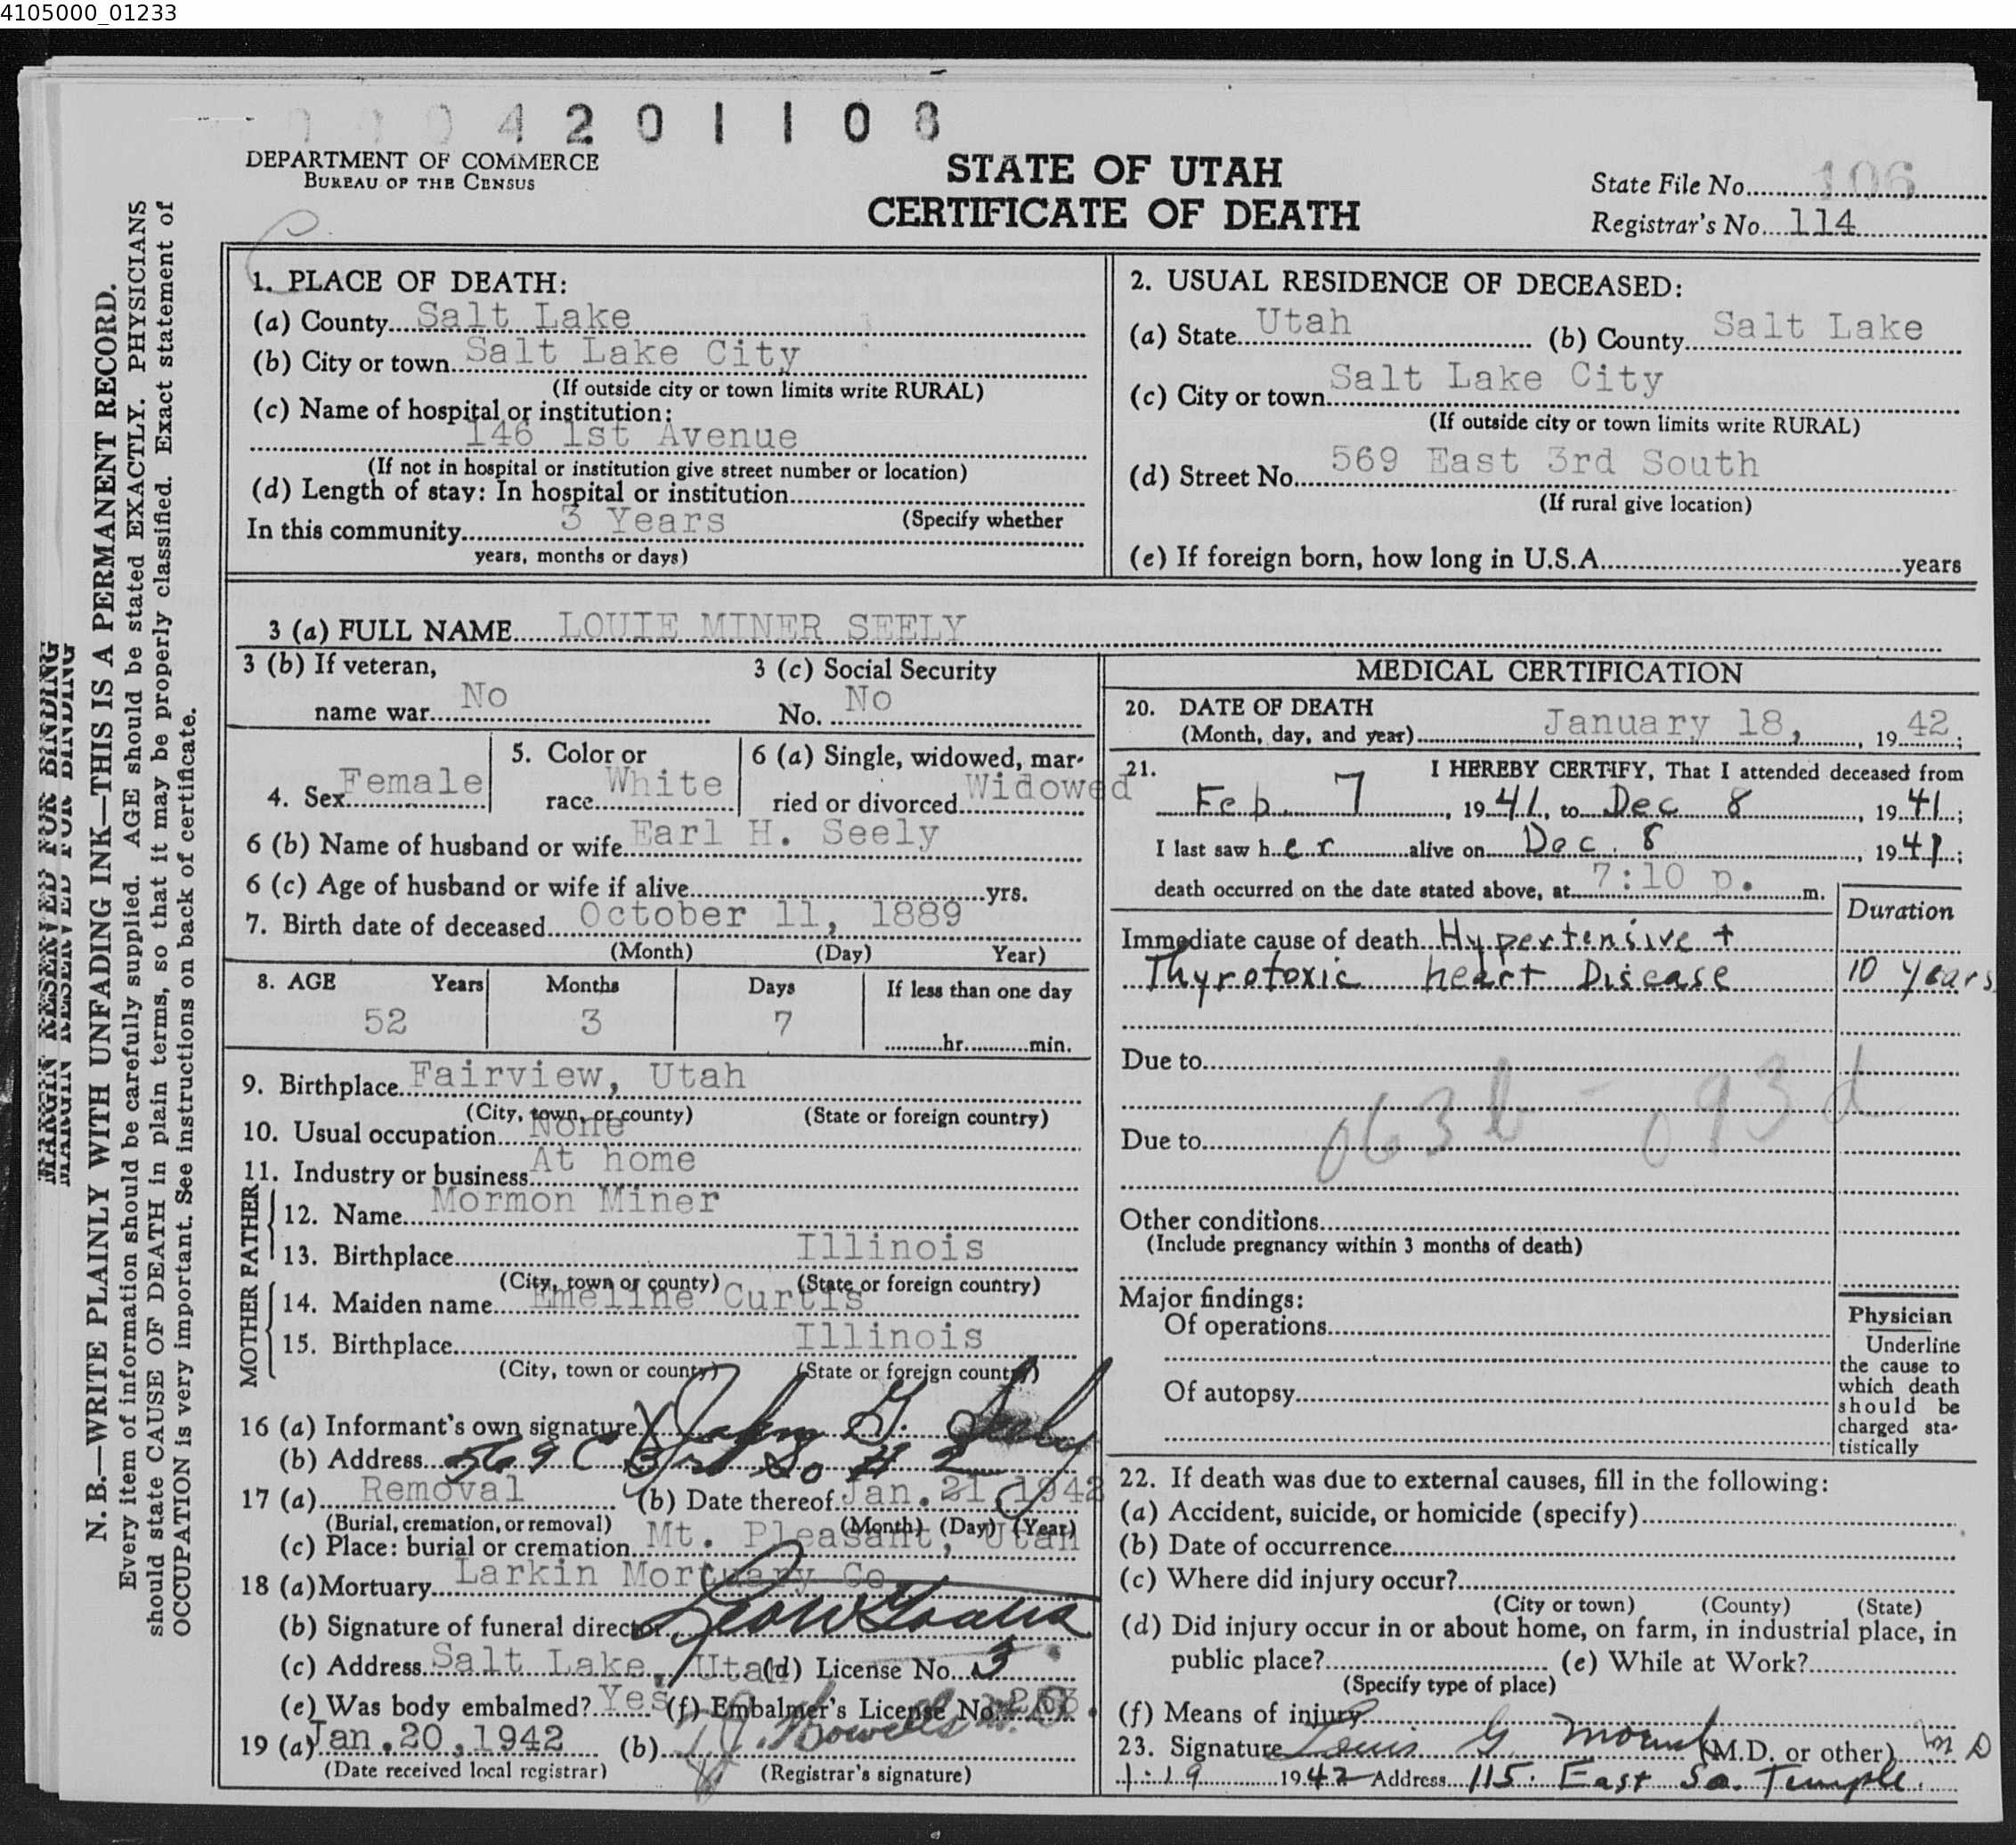 4105000_01233
4 2 0 1 1 0 8
DEPARTMENT OF COMMERCE
BUREAU OF THE CENSUS
STATE OF UTAH
CERTIFICATE OF DEATH
State File No. 106
Registrar's No. 114
MARGIN RESERVED FOR BINDING
MARGIN RESERVED FOR BINDING
N. B.—WRITE PLAINLY WITH UNFADING INK—THIS IS A PERMANENT RECORD.
Every item of information should be carefully supplied. AGE should be stated EXACTLY. PHYSICIANS
should state CAUSE OF DEATH in plain terms, so that it may be properly classified. Exact statement of
OCCUPATION is very important. See instructions on back of certificate.
1. PLACE OF DEATH:
(a) County Salt Lake
(b) City or town Salt Lake City
(If outside city or town limits write RURAL)
(c) Name of hospital or institution:
146 1st Avenue
(If not in hospital or institution give street number or location)
(d) Length of stay: In hospital or institution
(Specify whether
In this community 3 Years
years, months or days)
2. USUAL RESIDENCE OF DECEASED:
(a) State Utah (b) County Salt Lake
(c) City or town Salt Lake City
(If outside city or town limits write RURAL)
(d) Street No. 569 East 3rd South
(If rural give location)
(e) If foreign born, how long in U.S.A. years
3 (a) FULL NAME LOUIE MINER SEELY
3 (b) If veteran,
name war No
3 (c) Social Security
No. No
4. Sex Female
5. Color or
race White
6 (a) Single, widowed, mar-
ried or divorced Widowed
6 (b) Name of husband or wife Earl H. Seely
6 (c) Age of husband or wife if alive yrs.
7. Birth date of deceased October 11, 1889
(Month) (Day) Year)
8. AGE Years Months Days If less than one day
52 3 7 hr. min.
9. Birthplace Fairview, Utah
(City, town, or county) (State or foreign country)
10. Usual occupation None
11. Industry or business At home
FATHER
12. Name Mormon Miner
13. Birthplace Illinois
(City, town or county) (State or foreign country)
MOTHER
14. Maiden name Emeline Curtis
15. Birthplace Illinois
(City, town or county) (State or foreign country)
16 (a) Informant's own signature X John G. Seely
(b) Address 569 E 3rd So # 2
17 (a) Removal (b) Date thereof Jan. 21, 1942
(Burial, cremation, or removal) (Month) (Day) (Year)
(c) Place: burial or cremation Mt. Pleasant, Utah
18 (a) Mortuary Larkin Mortuary Co.
(b) Signature of funeral director
(c) Address Salt Lake, Utah (d) License No. 3
(e) Was body embalmed? Yes (f) Embalmer's License No.
19 (a) Jan. 20, 1942 (b)
(Date received local registrar) (Registrar's signature)
MEDICAL CERTIFICATION
20. DATE OF DEATH
(Month, day, and year) January 18, 1942;
21. I HEREBY CERTIFY, That I attended deceased from
Feb. 7, 1941, to Dec 8, 1941;
I last saw her alive on Dec. 8, 1941;
death occurred on the date stated above, at 7:10 p. m.
Duration
Immediate cause of death Hypertensive +
Thyrotoxic heart Disease 10 years
Due to
063b - 093d
Due to
Other conditions
(Include pregnancy within 3 months of death)
Major findings:
Of operations
Of autopsy
Physician
Underline
the cause to
which death
should be
charged sta-
tistically
22. If death was due to external causes, fill in the following:
(a) Accident, suicide, or homicide (specify)
(b) Date of occurrence
(c) Where did injury occur?
(City or town) (County) (State)
(d) Did injury occur in or about home, on farm, in industrial place, in
public place? (e) While at Work?
(Specify type of place)
(f) Means of injury
23. Signature Louis G Mount (M.D. or other) M D
1-19 1942 Address 115 East So. Temple.